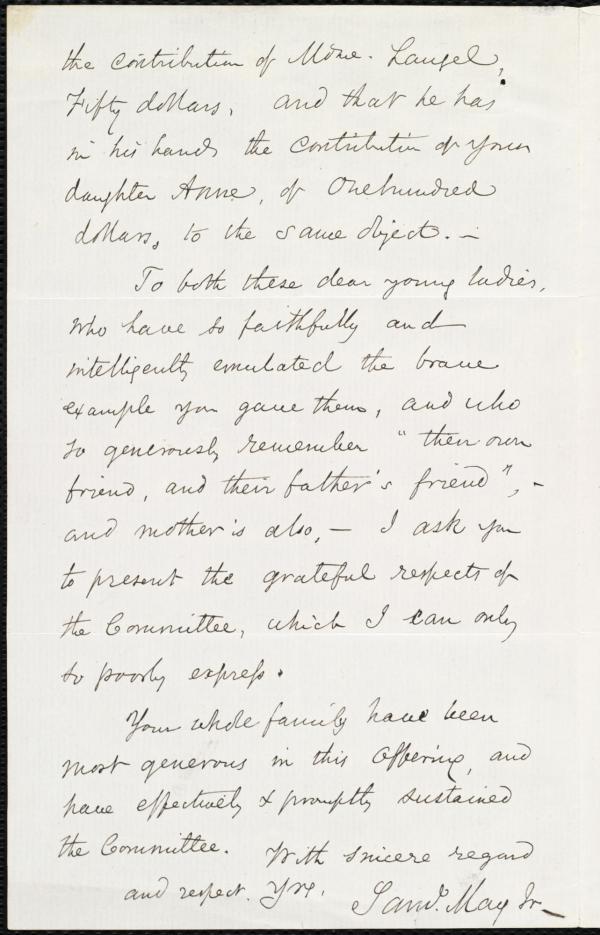 the contribution of Mdme. Laugel,
Fifty dollars, and that he has
in his hands the contribution of your
daughter Anne, of One hundred
dollars, to the same object. –
To both these dear young ladies,
who have so faithfully and
intelligently emulated the brave
example you gave them, and who
so generously remember "their own
friend, and their father's friend", –
and mother's also, – I ask you
to present the grateful respects of
the Committee, which I can only
so poorly express.
Your whole family have been
most generous in this Offering, and
have effectively & promptly sustained
the Committee. With sincere regard
and respect. Yrs.
Saml. May Jr –